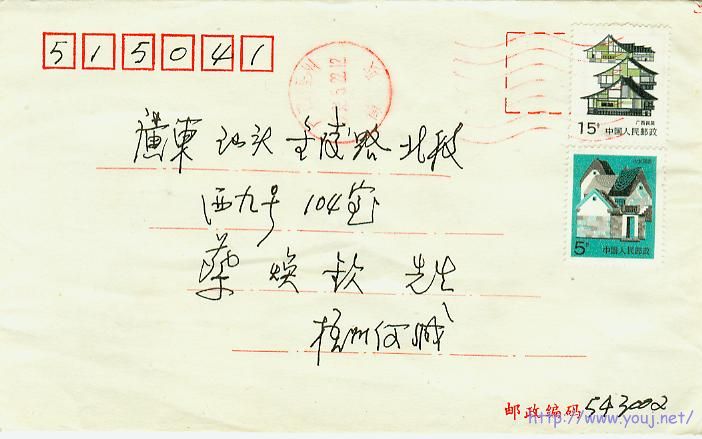 515041
广西民居
15分 中国人民邮政
廣東 汕头 金陵路 北段
西九号 104室
5分 中国人民邮政
蔡 焕 钦 先生
梧州何城
邮政编码 543002
http://www.youj.net/